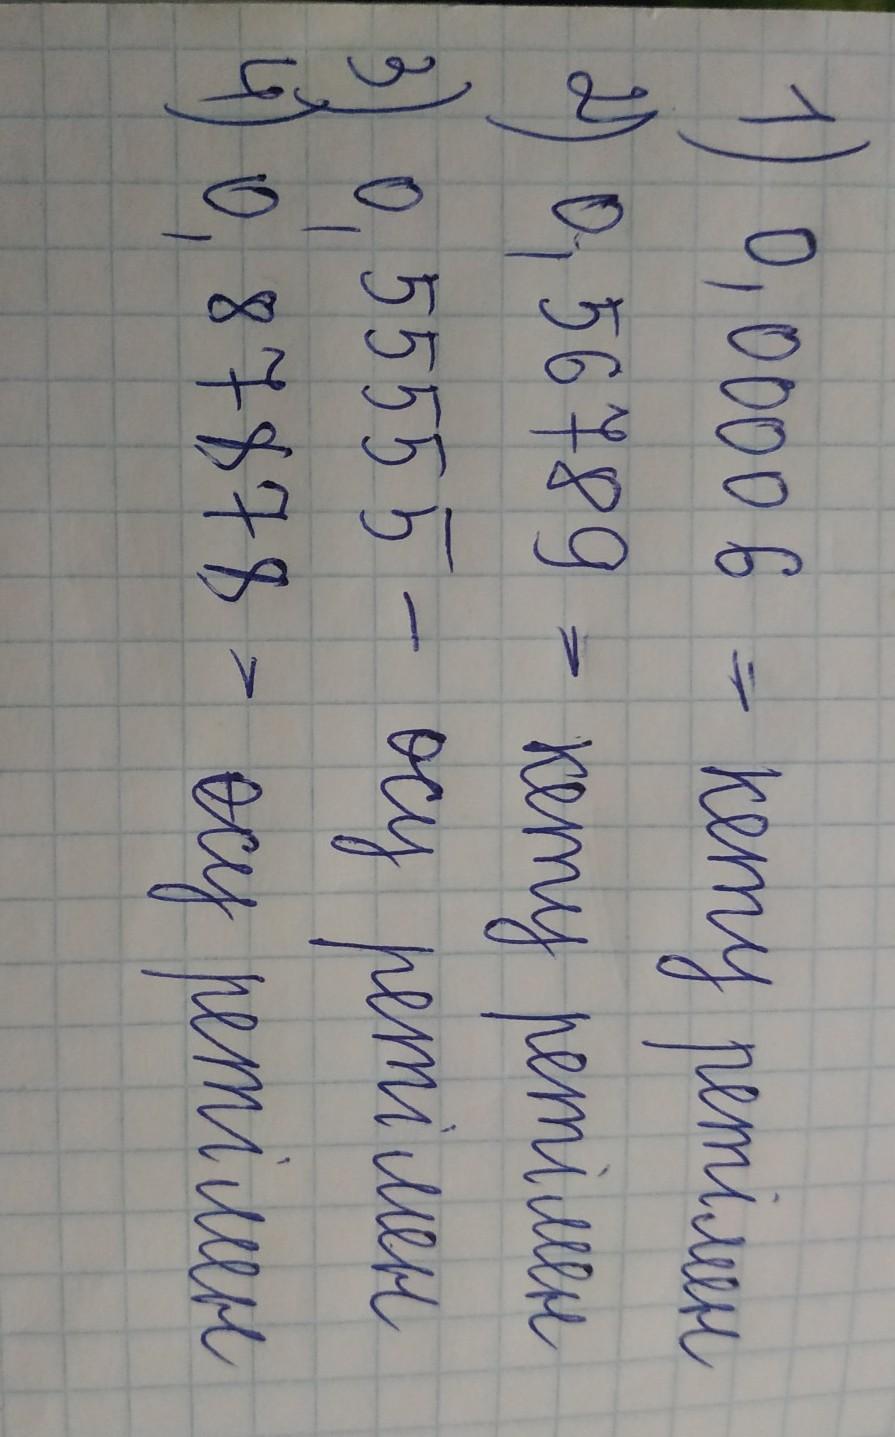 1) 0,00006 = кему ретімен
2) 0,56789 = кему ретімен
3) 0,55555 - өсу ретімен
4) 0,87878 = өсу ретімен